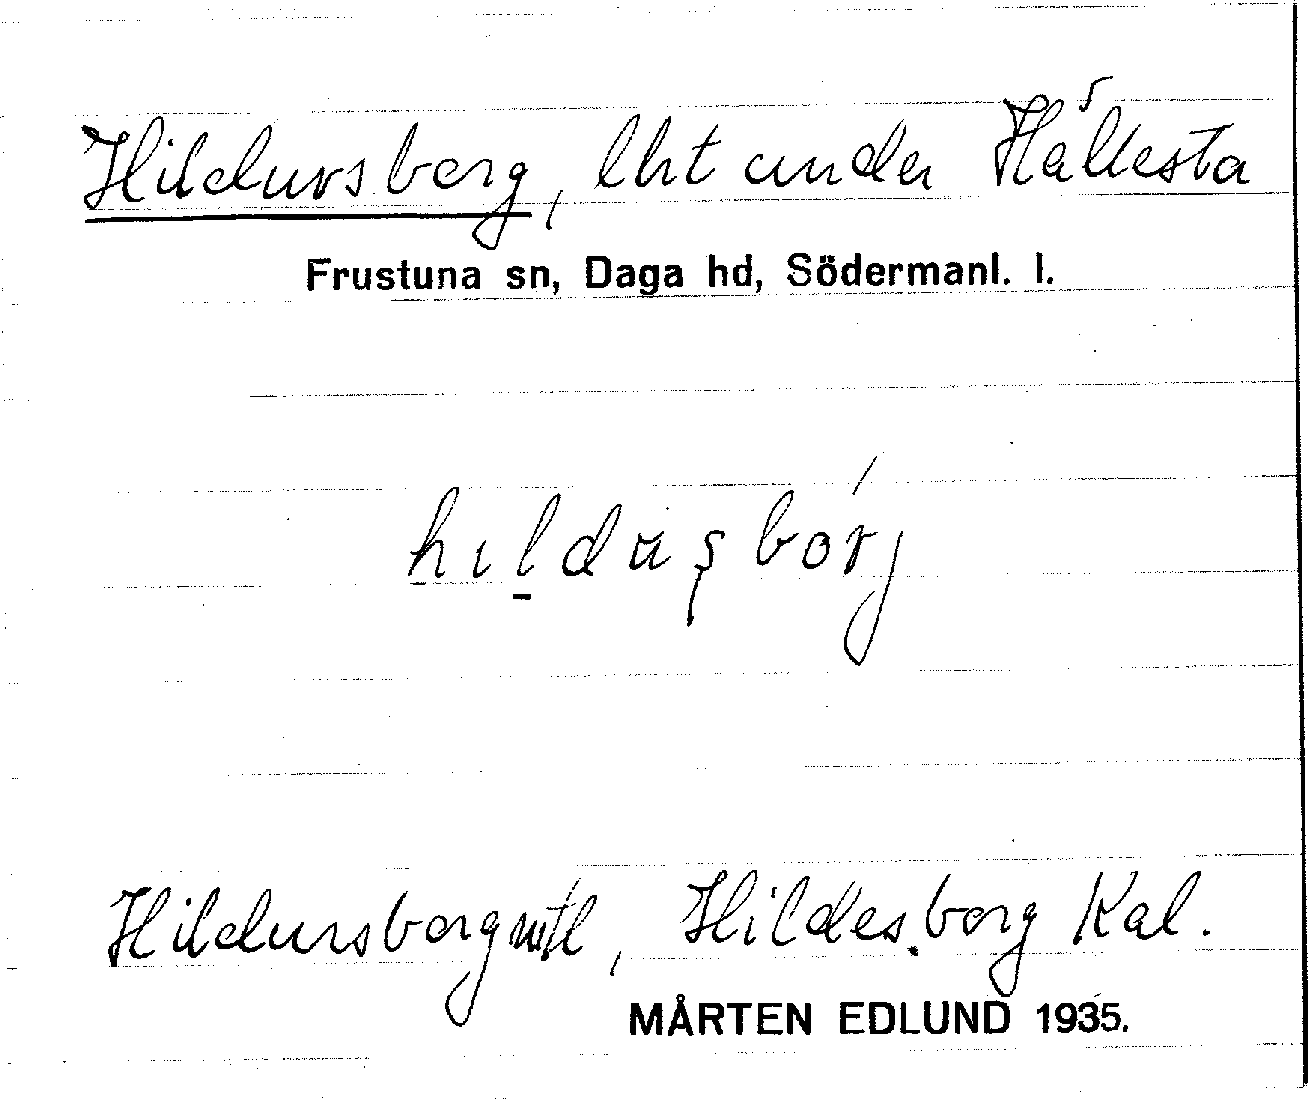 Hildursborg, lht under Hållesta
Frustuna sn, Daga hd, Södermanl. l.
hɪldusborj
Hildursborg mtl, Hildesborg Kal.
MÅRTEN EDLUND 1935.